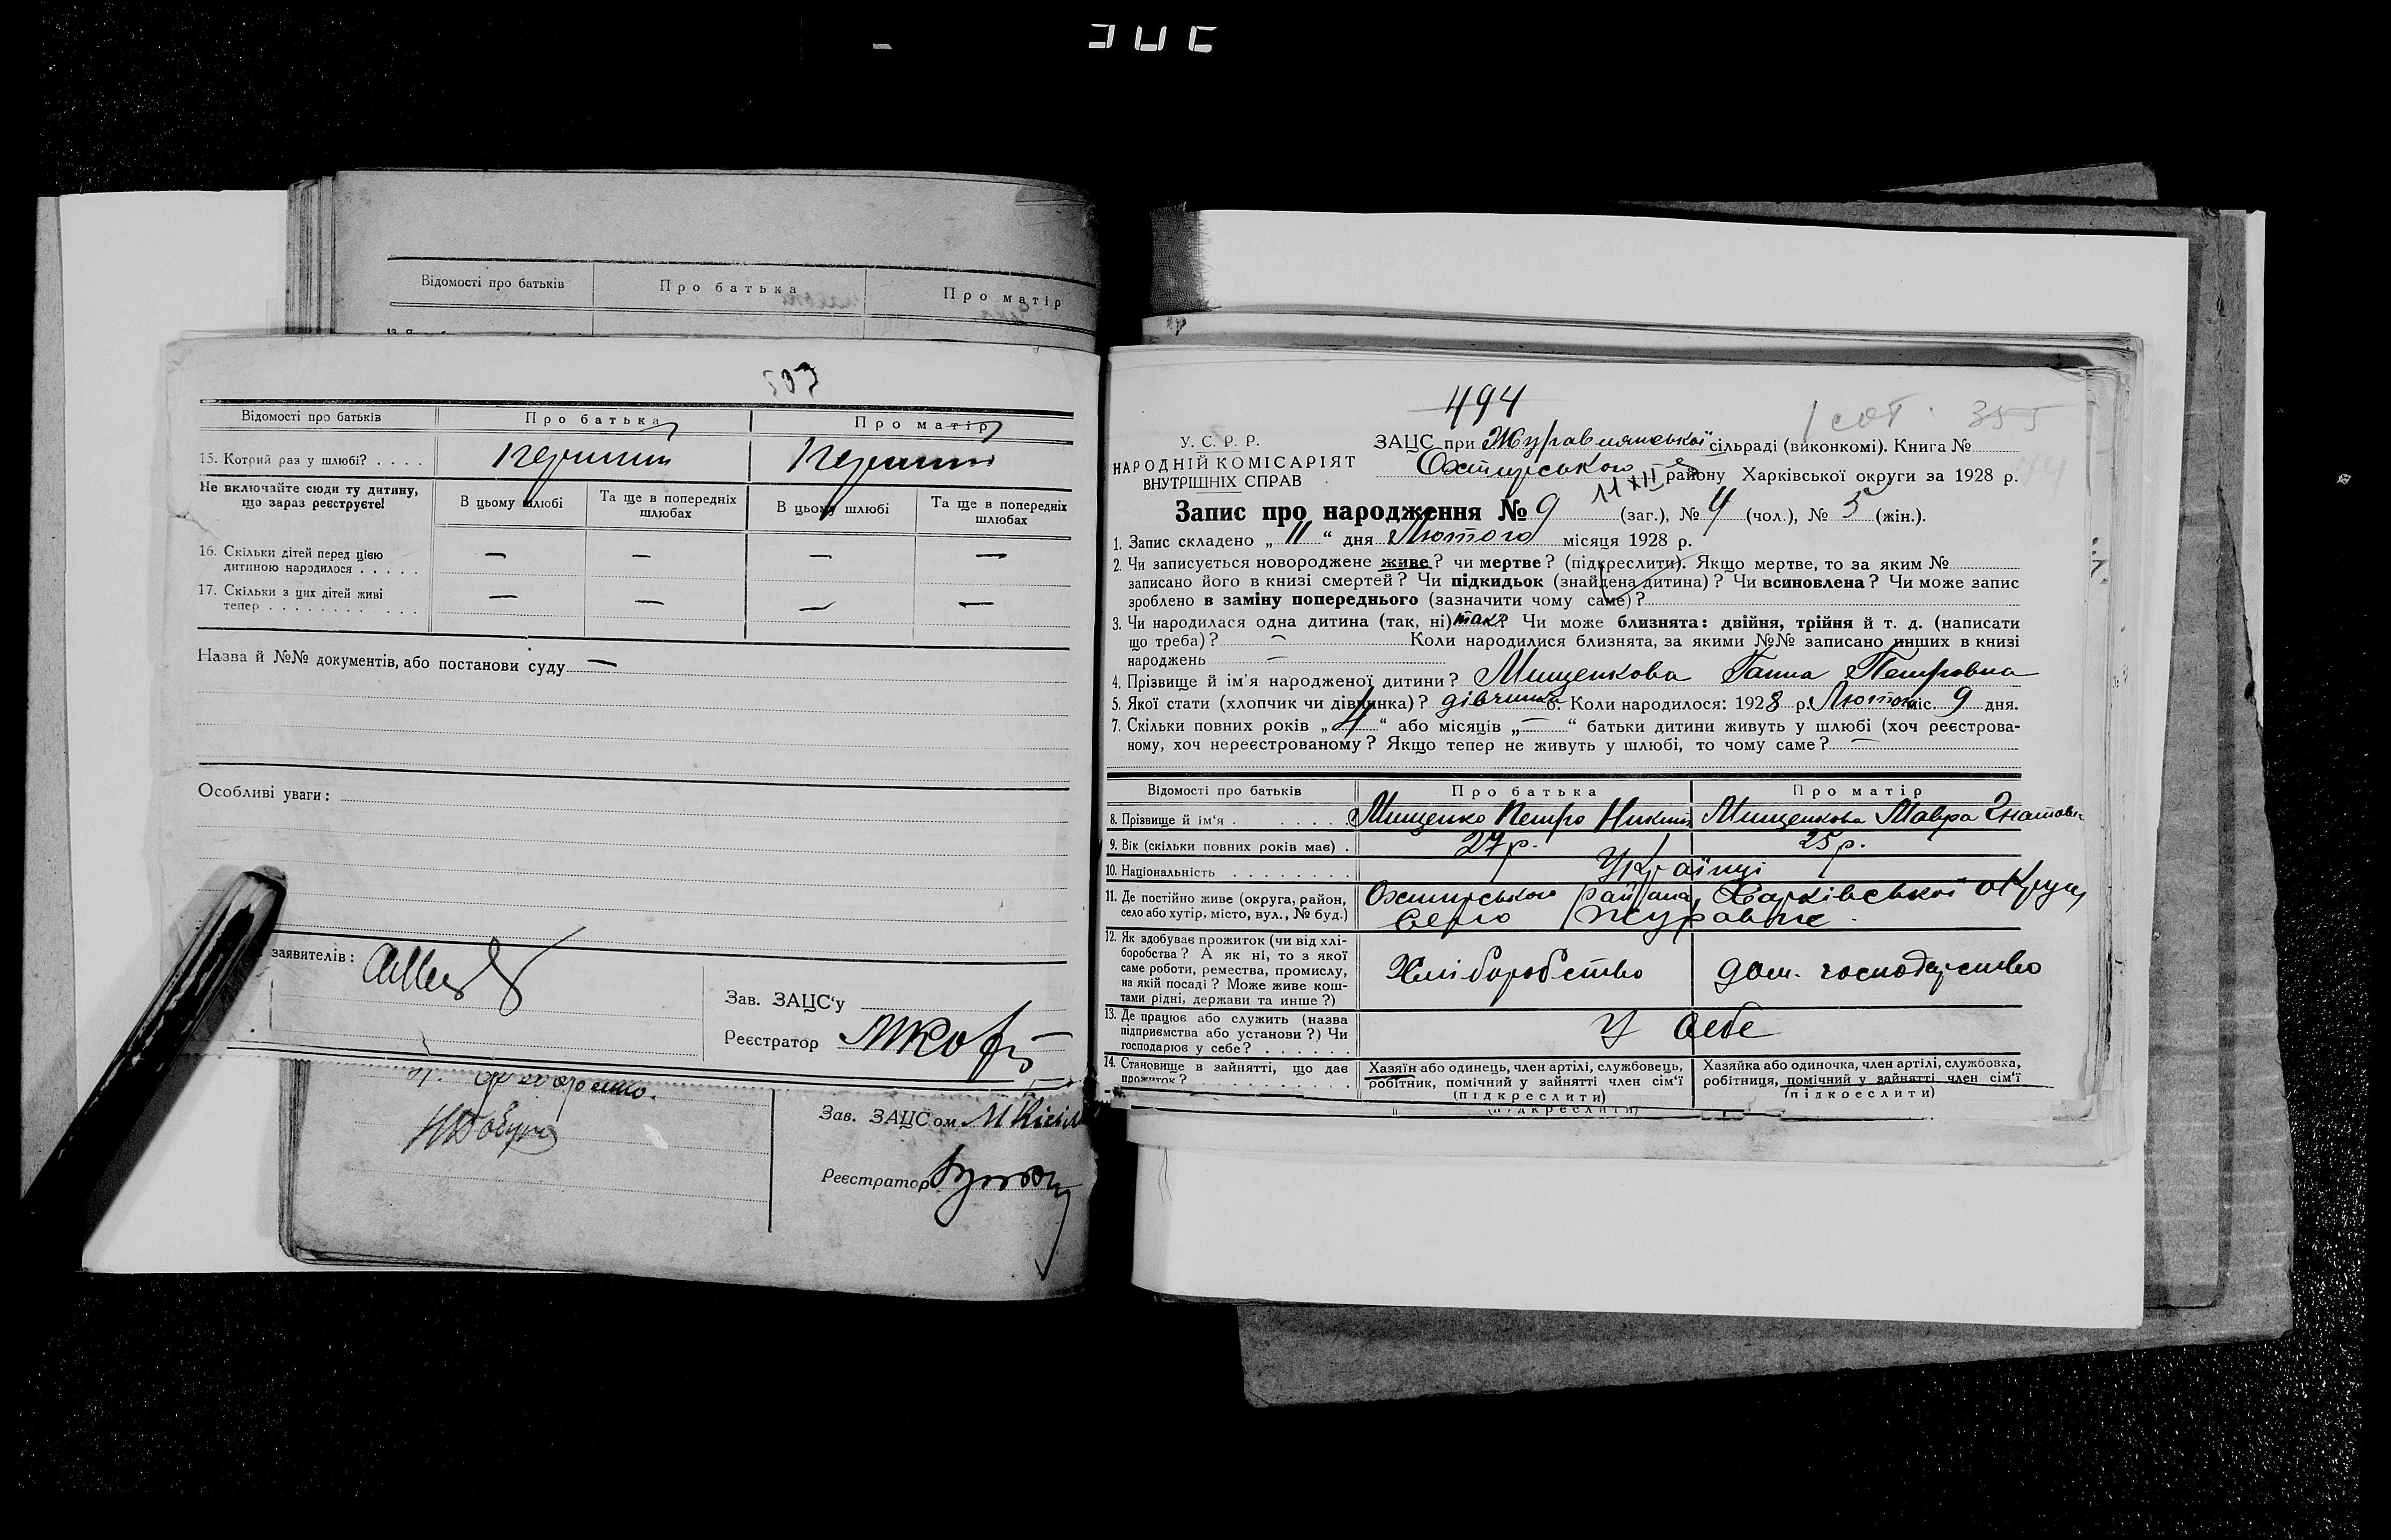 Відомості про батьків
Про батька
Про матір
503
Відомості про батьків
Про батька
Про матір
15. Котрий раз у шлюбі? . . . .
Не включайте сюди ту дитину,
що зараз реєструєте!
В цьому шлюбі
Та ще в попередніх
шлюбах
В цьому шлюбі
Та ще в попередніх
шлюбах
16. Скільки дітей перед цією
дитиною народилося . . . . .
— — — —
17. Скільки з цих дітей живі
тепер . . . . . . . . . . .
— — — —
Назва й №№ документів, або постанови суду —
Особливі уваги:
заявителів:
Зав. ЗАЦС'у
Реєстратор
Зав. ЗАЦС ом
Реєстратор
494
355
У. С. Р. Р.
НАРОДНІЙ КОМІСАРІЯТ
ВНУТРІШНІХ СПРАВ
ЗАЦС при Журавлянської сільраді (виконкомі). Книга №
Охтирського району Харківської округи за 1928 р.
11 XII
Запис про народження № 9 (заг.), № 4 (чол.), № 5 (жін.).
1. Запис складено „ 11 “ дня Лютого місяця 1928 р.
2. Чи записується новороджене живе? чи мертве? (підкреслити). Якщо мертве, то за яким №
записано його в книзі смертей? Чи підкидьок (знайдена дитина)? Чи всиновлена? Чи може запис
зроблено в заміну попереднього (зазначити чому саме)?
3. Чи народилася одна дитина (так, ні) так? Чи може близнята: двійня, трійня й т. д. (написати
що треба)? — Коли народилися близнята, за якими №№ записано инших в книзі
народжень —
4. Прізвище й ім'я народженої дитини? Мищенкова Ганна Петровна
5. Якої стати (хлопчик чи дівчинка)? дівчинка 6. Коли народилося: 1928 р. Лютого міс. 9 дня.
7. Скільки повних років „ 4 “ або місяців „ — “ батьки дитини живуть у шлюбі (хоч реєстрова-
ному, хоч нереєстрованому? Якщо тепер не живуть у шлюбі, то чому саме? —
Відомості про батьків
Про батька
Про матір
8. Прізвище й ім'я . . . . . .
Мищенко Петро Никит
Мищенкова Мавра Гнатовн
9. Вік (скільки повних років має) .
27 р.
25 р.
10. Національність . . . . . . . .
Українці
11. Де постійно живе (округа, район,
село або хутір, місто, вул., № буд.)
Охтирського району, Харківської округи
Село Журавне
12. Як здобуває прожиток (чи від хлі-
боробства? А як ні, то з якої
саме роботи, ремества, промислу,
на якій посаді? Може живе кош-
тами рідні, держави та инше?)
Хліборобство
дом. господарство
13. Де працює або служить (назва
підприємства або установи?) Чи
господарює у себе? . . . . . .
У себе
14. Становище в зайнятті, що дає
прожиток? . . . . . . . . . .
Хазяїн або одинець, член артілі, службовець,
робітник, помічний у зайнятті член сім'ї
(підкреслити)
Хазяйка або одиночка, член артілі, службовка,
робітниця, помічний у зайнятті член сім'ї
(підкреслити)
(підкреслити)